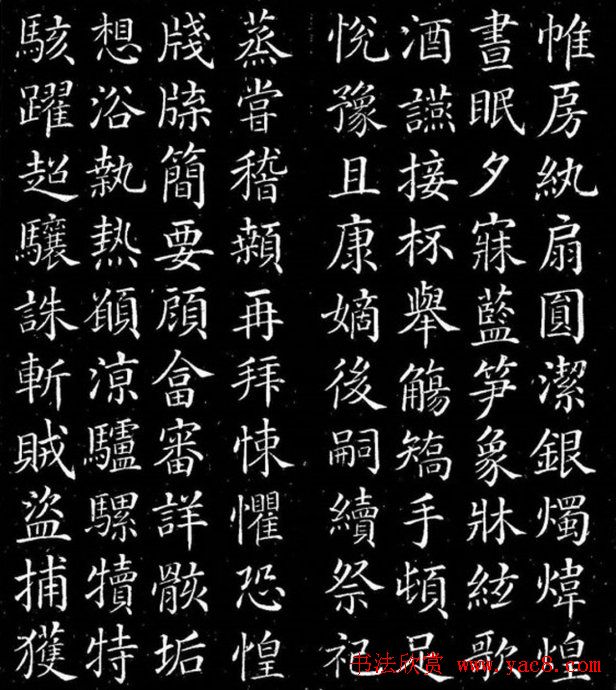 帷房紈扇圓潔銀燭煒煌
晝眠夕寐藍笋象牀絃歌
酒讌接杯舉觴矯手頓足
悅豫且康嫡後嗣續祭祀
蒸嘗稽顙再拜悚懼恐惶
牋牒簡要顧畣審詳骸垢
想浴執熱願涼驢騾犢特
駭躍超驤誅斬賊盜捕獲
书法欣赏 www.yac8.com